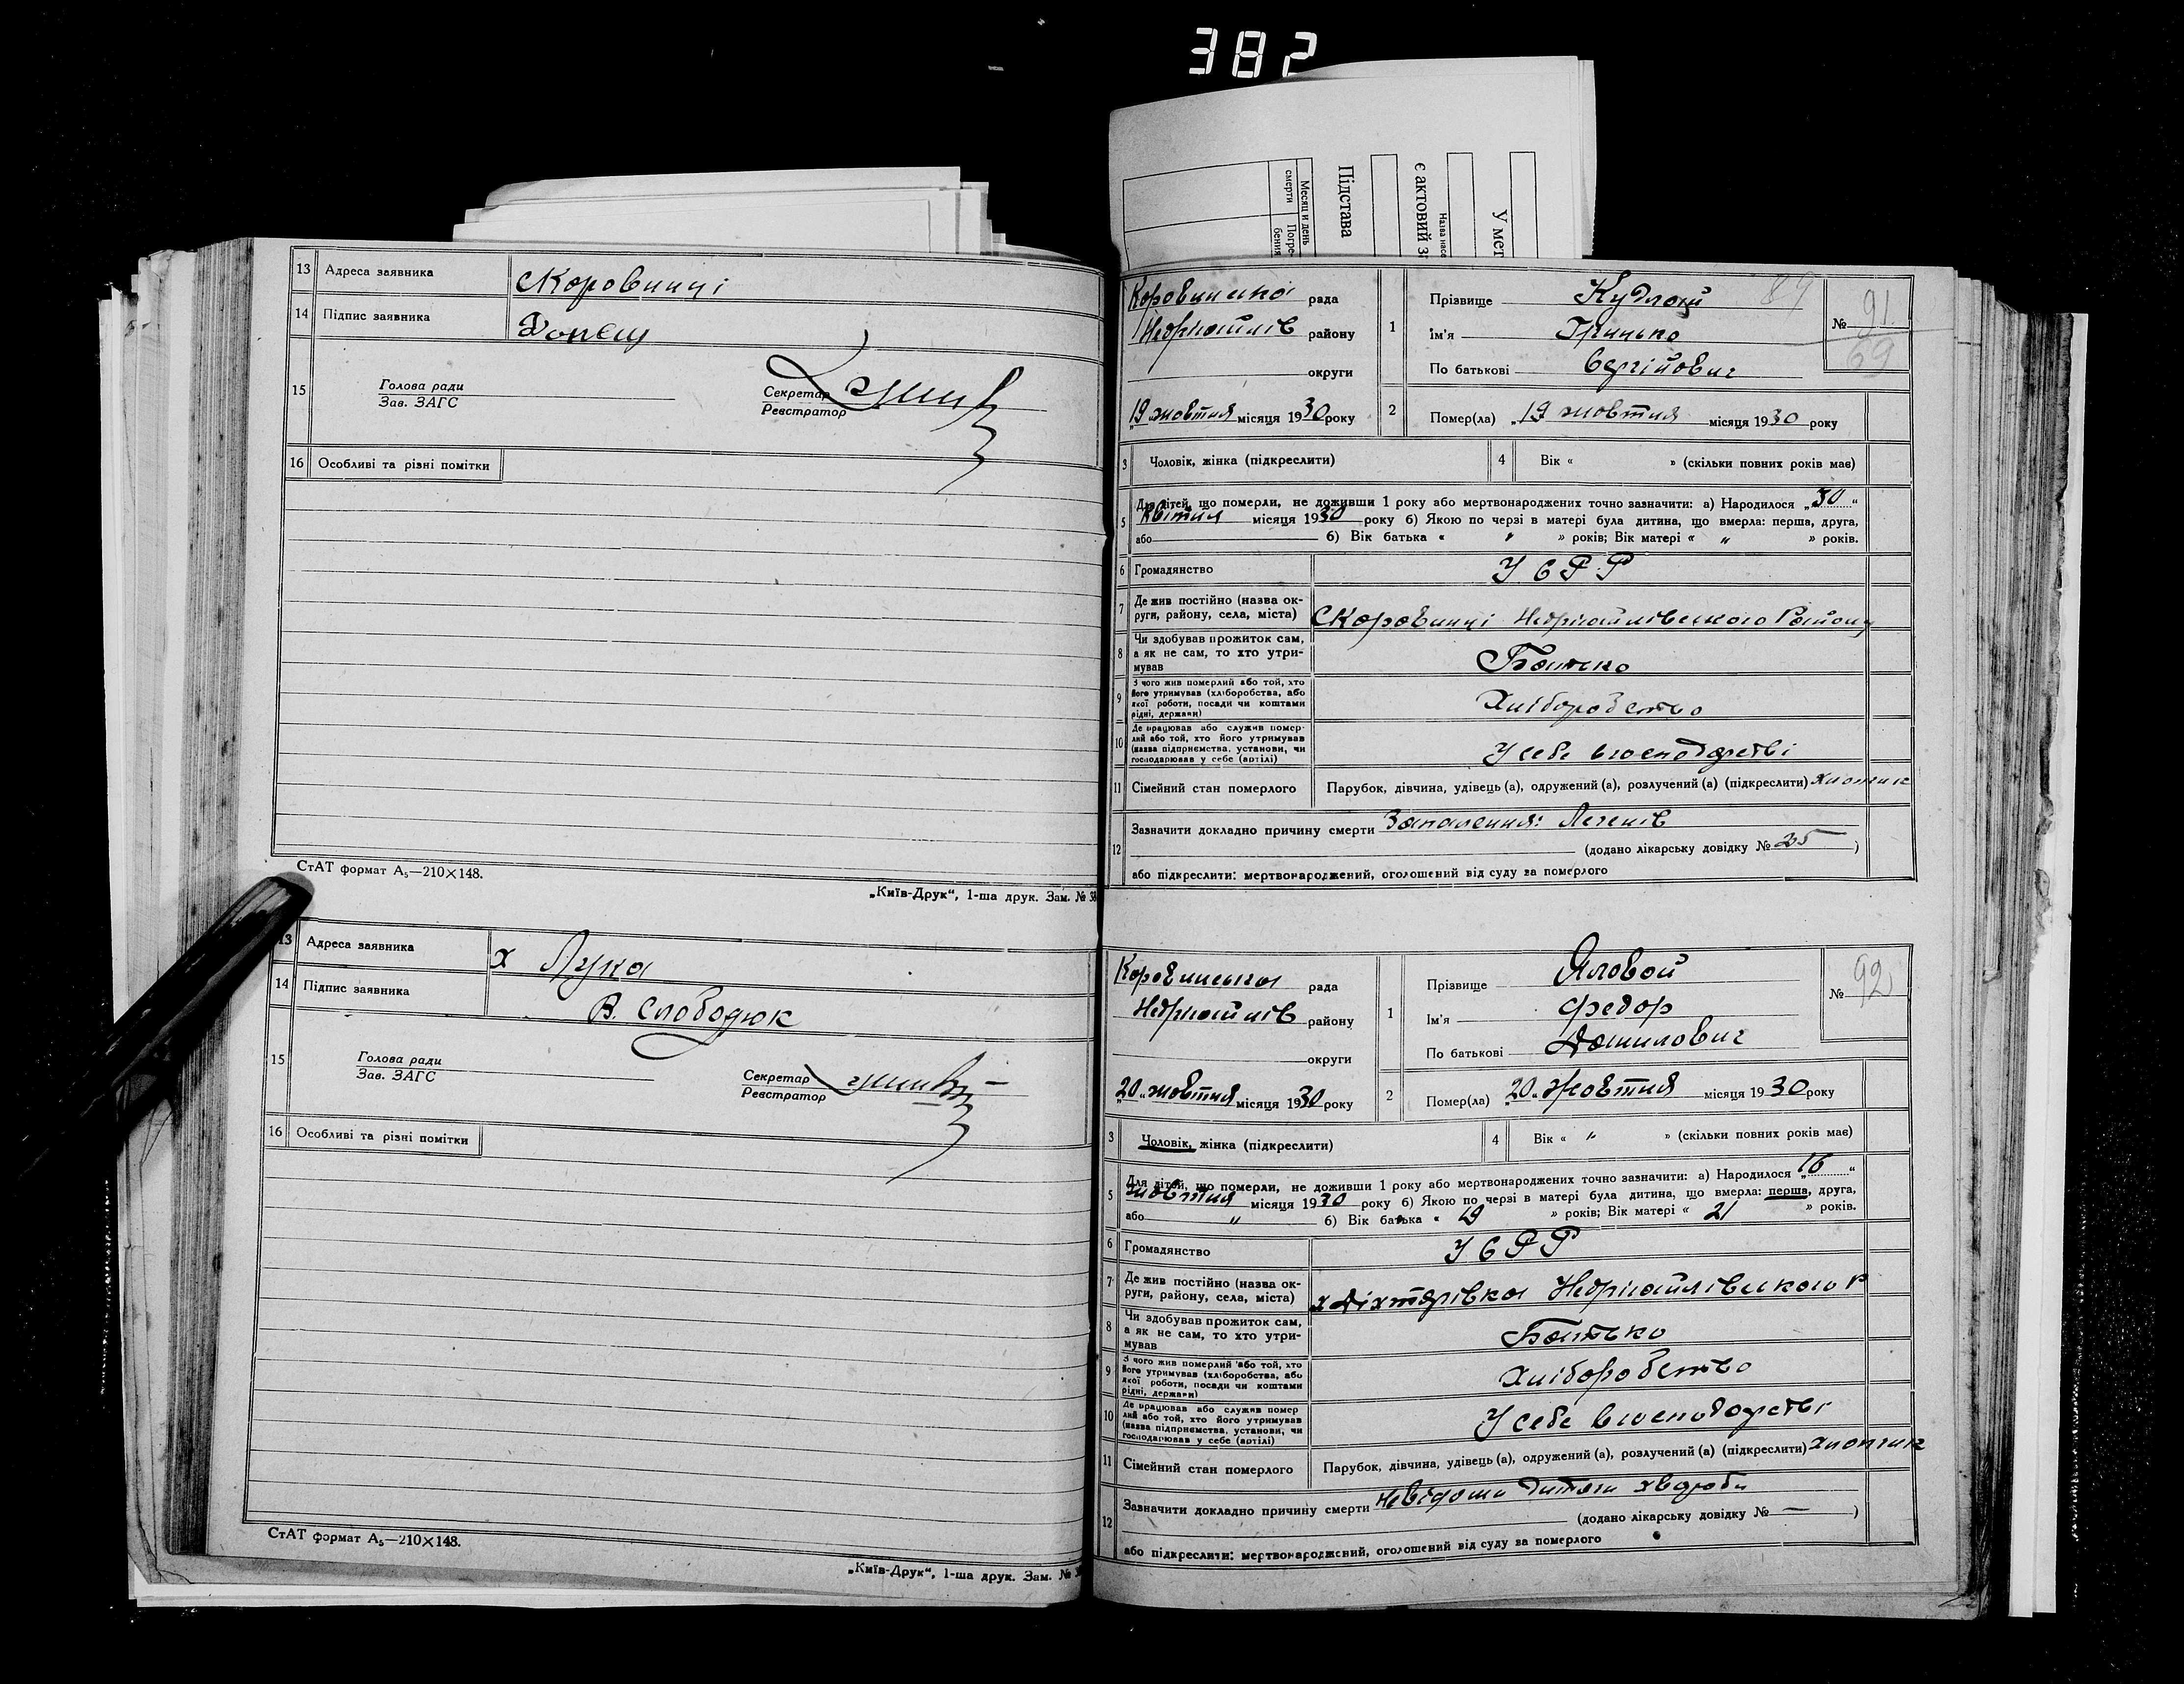 382
Месяц и день
смерти
Погре-
бения
Підстава
є актовий з
У мет
13 Адреса заявника СКоровинці
14 Підпис заявника
15 Голова ради
Зав. ЗАГС
Секретар
Реєстратор
16 Особливі та різні помітки
СтАТ формат А₅—210×148.
„Київ-Друк“, 1-ша друк. Зам. № 38
13 Адреса заявника х Лука
14 Підпис заявника В. Слободюк
15 Голова ради
Зав. ЗАГС
Секретар
Реєстратор
16 Особливі та різні помітки
СтАТ формат А₅—210×148.
„Київ-Друк“, 1-ша друк. Зам. №
Коровинська рада
Недригайлів району
округи
„19 жовтня місяця 1930 року
1 Прізвище Кудлай 89
Ім'я Грицько
По батькові Сергійович
№ 91
69
2 Помер(ла) „19 жовтня місяця 1930 року
3 Чоловік, жінка (підкреслити)
4 Вік « » (скільки повних років має)
5 Для дітей, що померли, не доживши 1 року або мертвонароджених точно зазначити: а) Народилося „30“
Квітня місяця 1930 року б) Якою по черзі в матері була дитина, що вмерла: перша, друга,
або б) Вік батька « " » років; Вік матері « " » років.
6 Громадянство УСРР
7 Де жив постійно (назва ок-
руги, району, села, міста) СКоровинці Недригайлівського Району
8 Чи здобував прожиток сам,
а як не сам, то хто утри-
мував Батько
9 З чого жив померлий або той, хто
його утримував (хліборобства, або
якої роботи, посади чи коштами
рідні, держави) Хліборобство
10 Де працював або служив помер
лий або той, хто його утримував
(назва підприємства, установи, чи
господарював у себе (артілі) У себе вгосподарстві
11 Сімейний стан померлого Парубок, дівчина, удівець (а), одружений (а), розлучений (а) (підкреслити) Хлопчик
12 Зазначити докладно причину смерти Запалення Легенів
(додано лікарську довідку № 25)
або підкреслити: мертвонароджений, оголошений від суду за померлого
Коровинська рада
Недригайлів району
округи
„20 „жовтня місяця 1930 року
1 Прізвище Яловой
Ім'я Федор
По батькові Данилович
№ 92
2 Помер(ла) „20 „Жовтня місяця 1930 року
3 Чоловік, жінка (підкреслити)
4 Вік « " » (скільки повних років має)
5 Для дітей, що померли, не доживши 1 року або мертвонароджених точно зазначити: а) Народилося „16“
жовтня місяця 1930 року б) Якою по черзі в матері була дитина, що вмерла: перша, друга,
або " б) Вік батька « 19 » років; Вік матері « 21 » років.
6 Громадянство УСРР
7 Де жив постійно (назва ок-
руги, району, села, міста) х Діхтярівка Недригайлівського Р
8 Чи здобував прожиток сам,
а як не сам, то хто утри-
мував Батько
9 З чого жив померлий або той, хто
його утримував (хліборобства, або
якої роботи, посади чи коштами
рідні, держави) Хліборобство
10 Де працював або служив помер
лий або той, хто його утримував
(назва підприємства, установи, чи
господарював у себе (артілі) У себе вгосподарстві
11 Сімейний стан померлого Парубок, дівчина, удівець (а), одружений (а), розлучений (а) (підкреслити) Хлопчик
12 Зазначити докладно причину смерти Невідома
(додано лікарську довідку № — )
або підкреслити: мертвонароджений, оголошений від суду за померлого